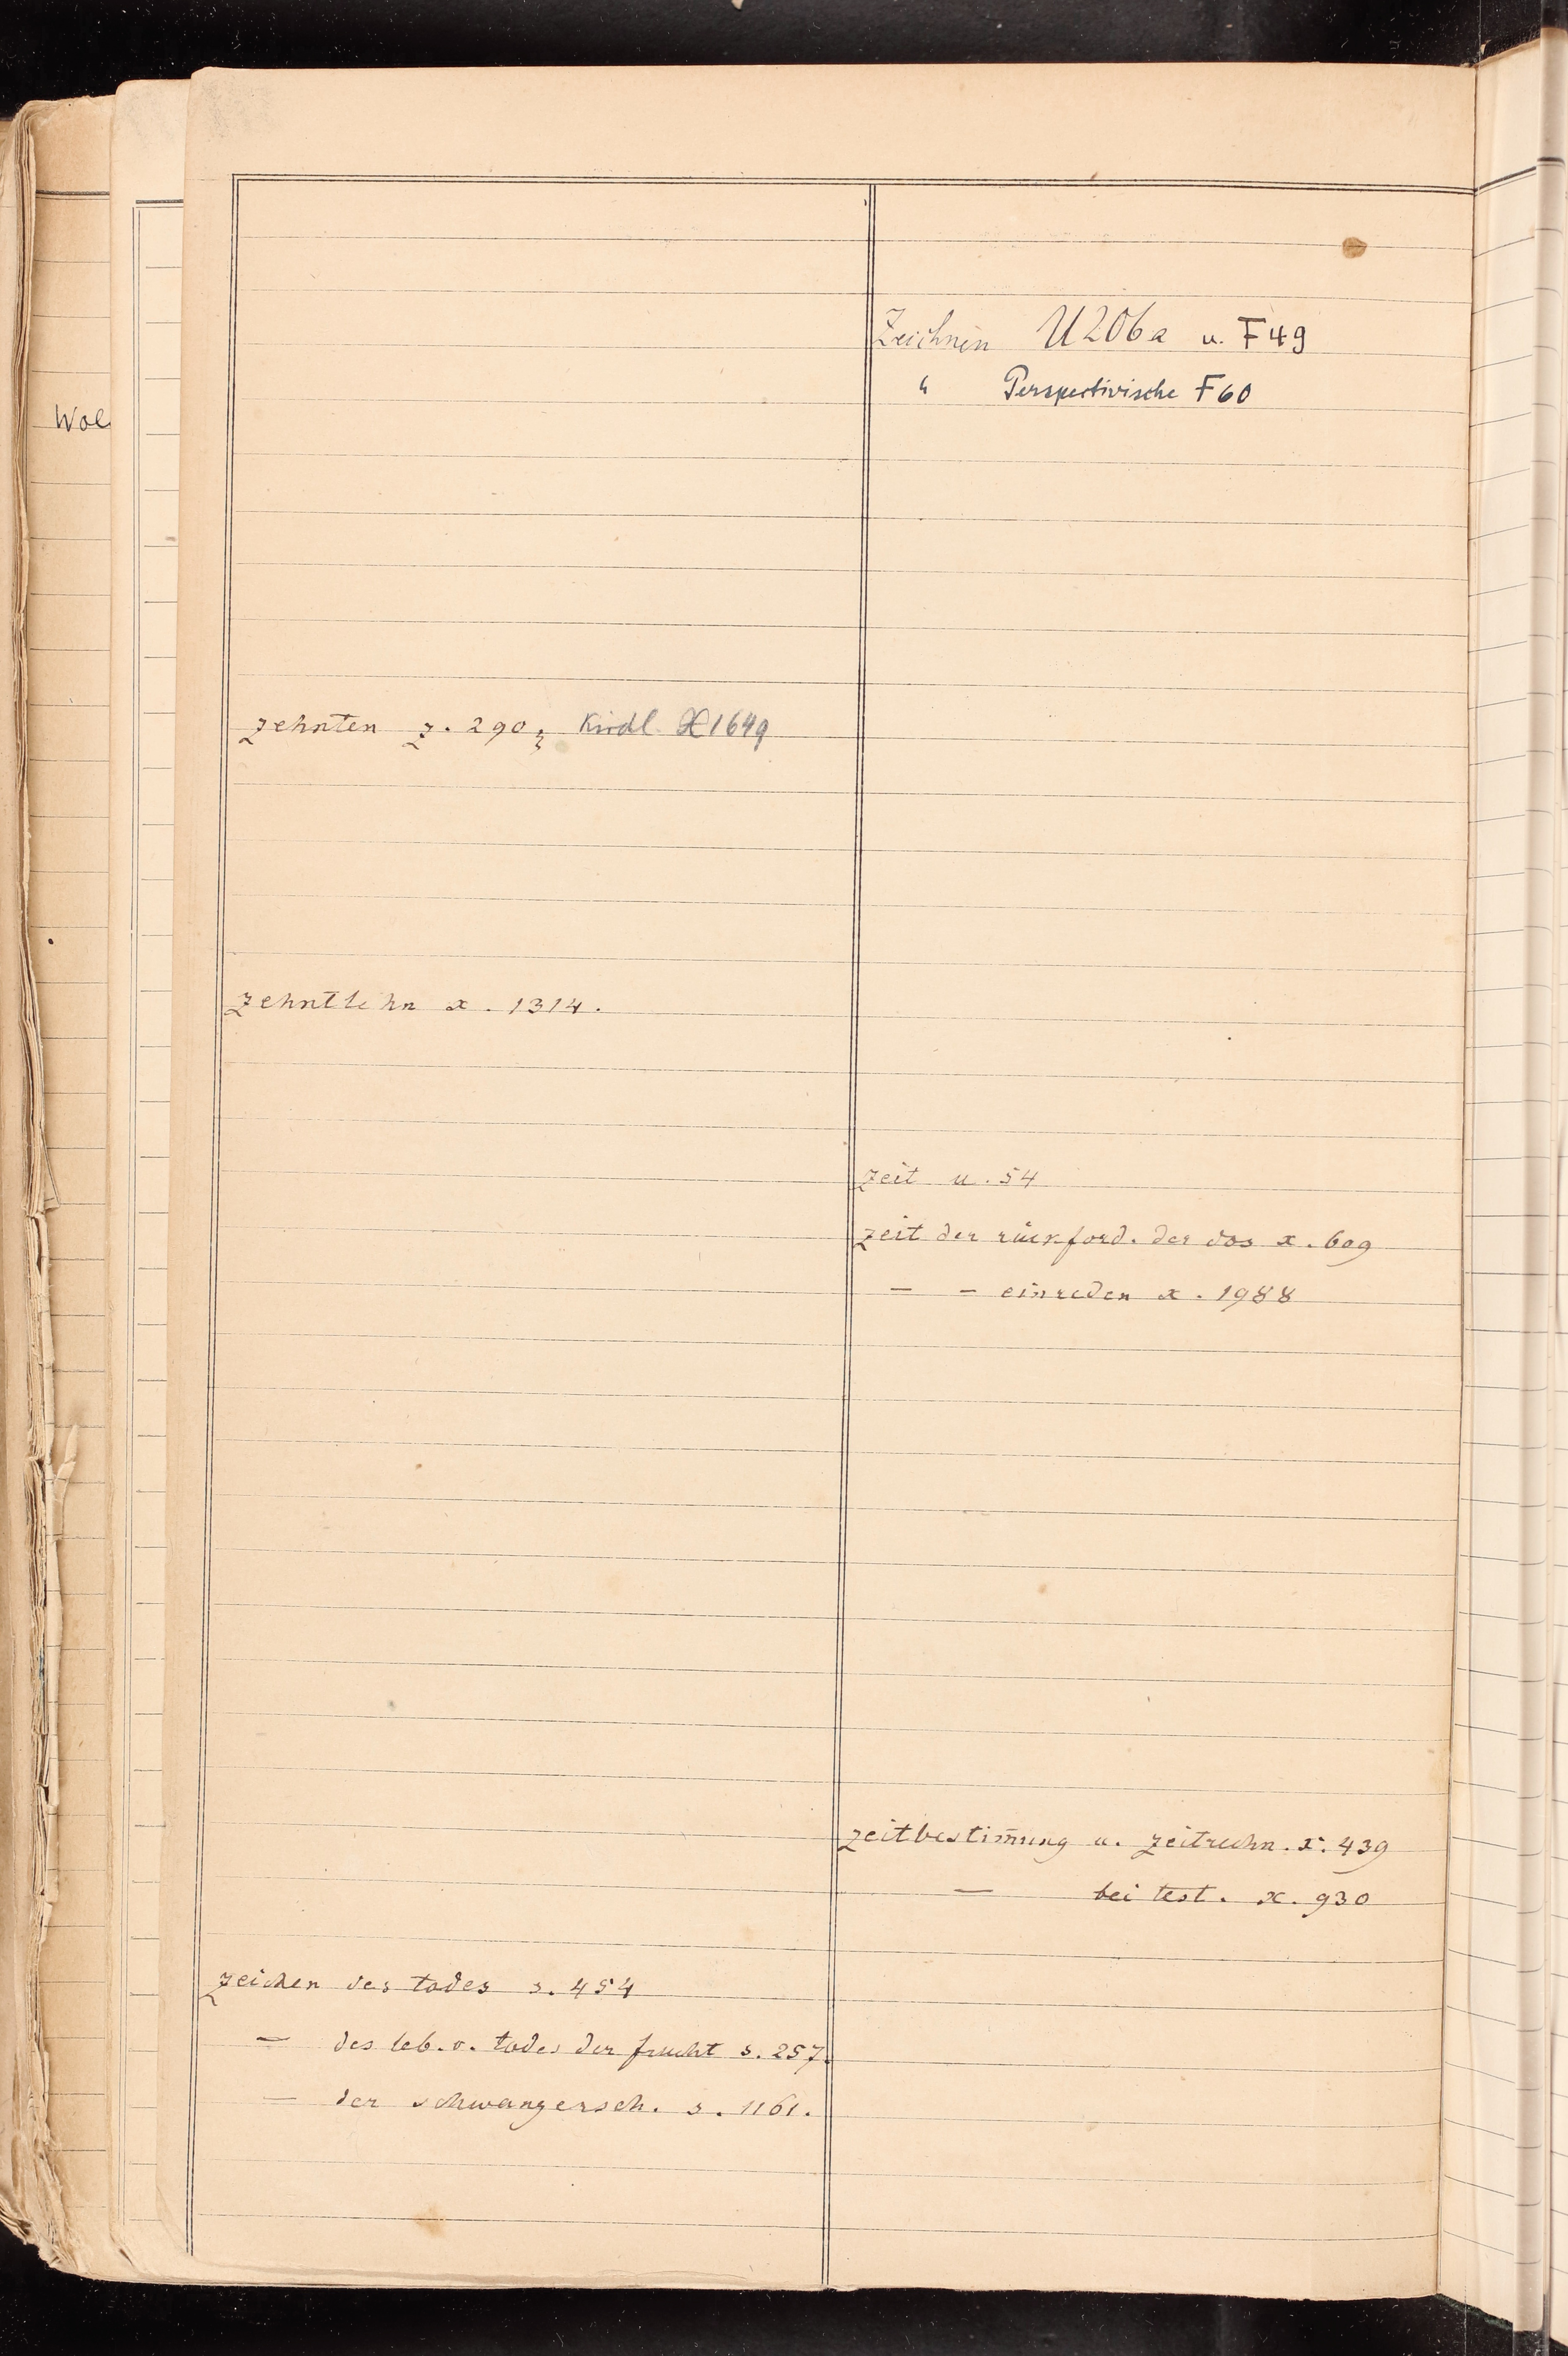 Wol
zehnten z. 290, Kirdl. X 1649
zehntlehn x. 1314.
zeichen des todes s. 454
— des leb. o. todes der frucht s. 257.
— der schwangersch. s. 1161.
Zeichnen U 206a u. F 49
" Perspectivische F 60
zeit u. 54
zeit der rückford. der dos x. 609
— — einreden x. 1988
zeitbestim̄ung u. zeitrechn. x. 439
— bei test. x. 930